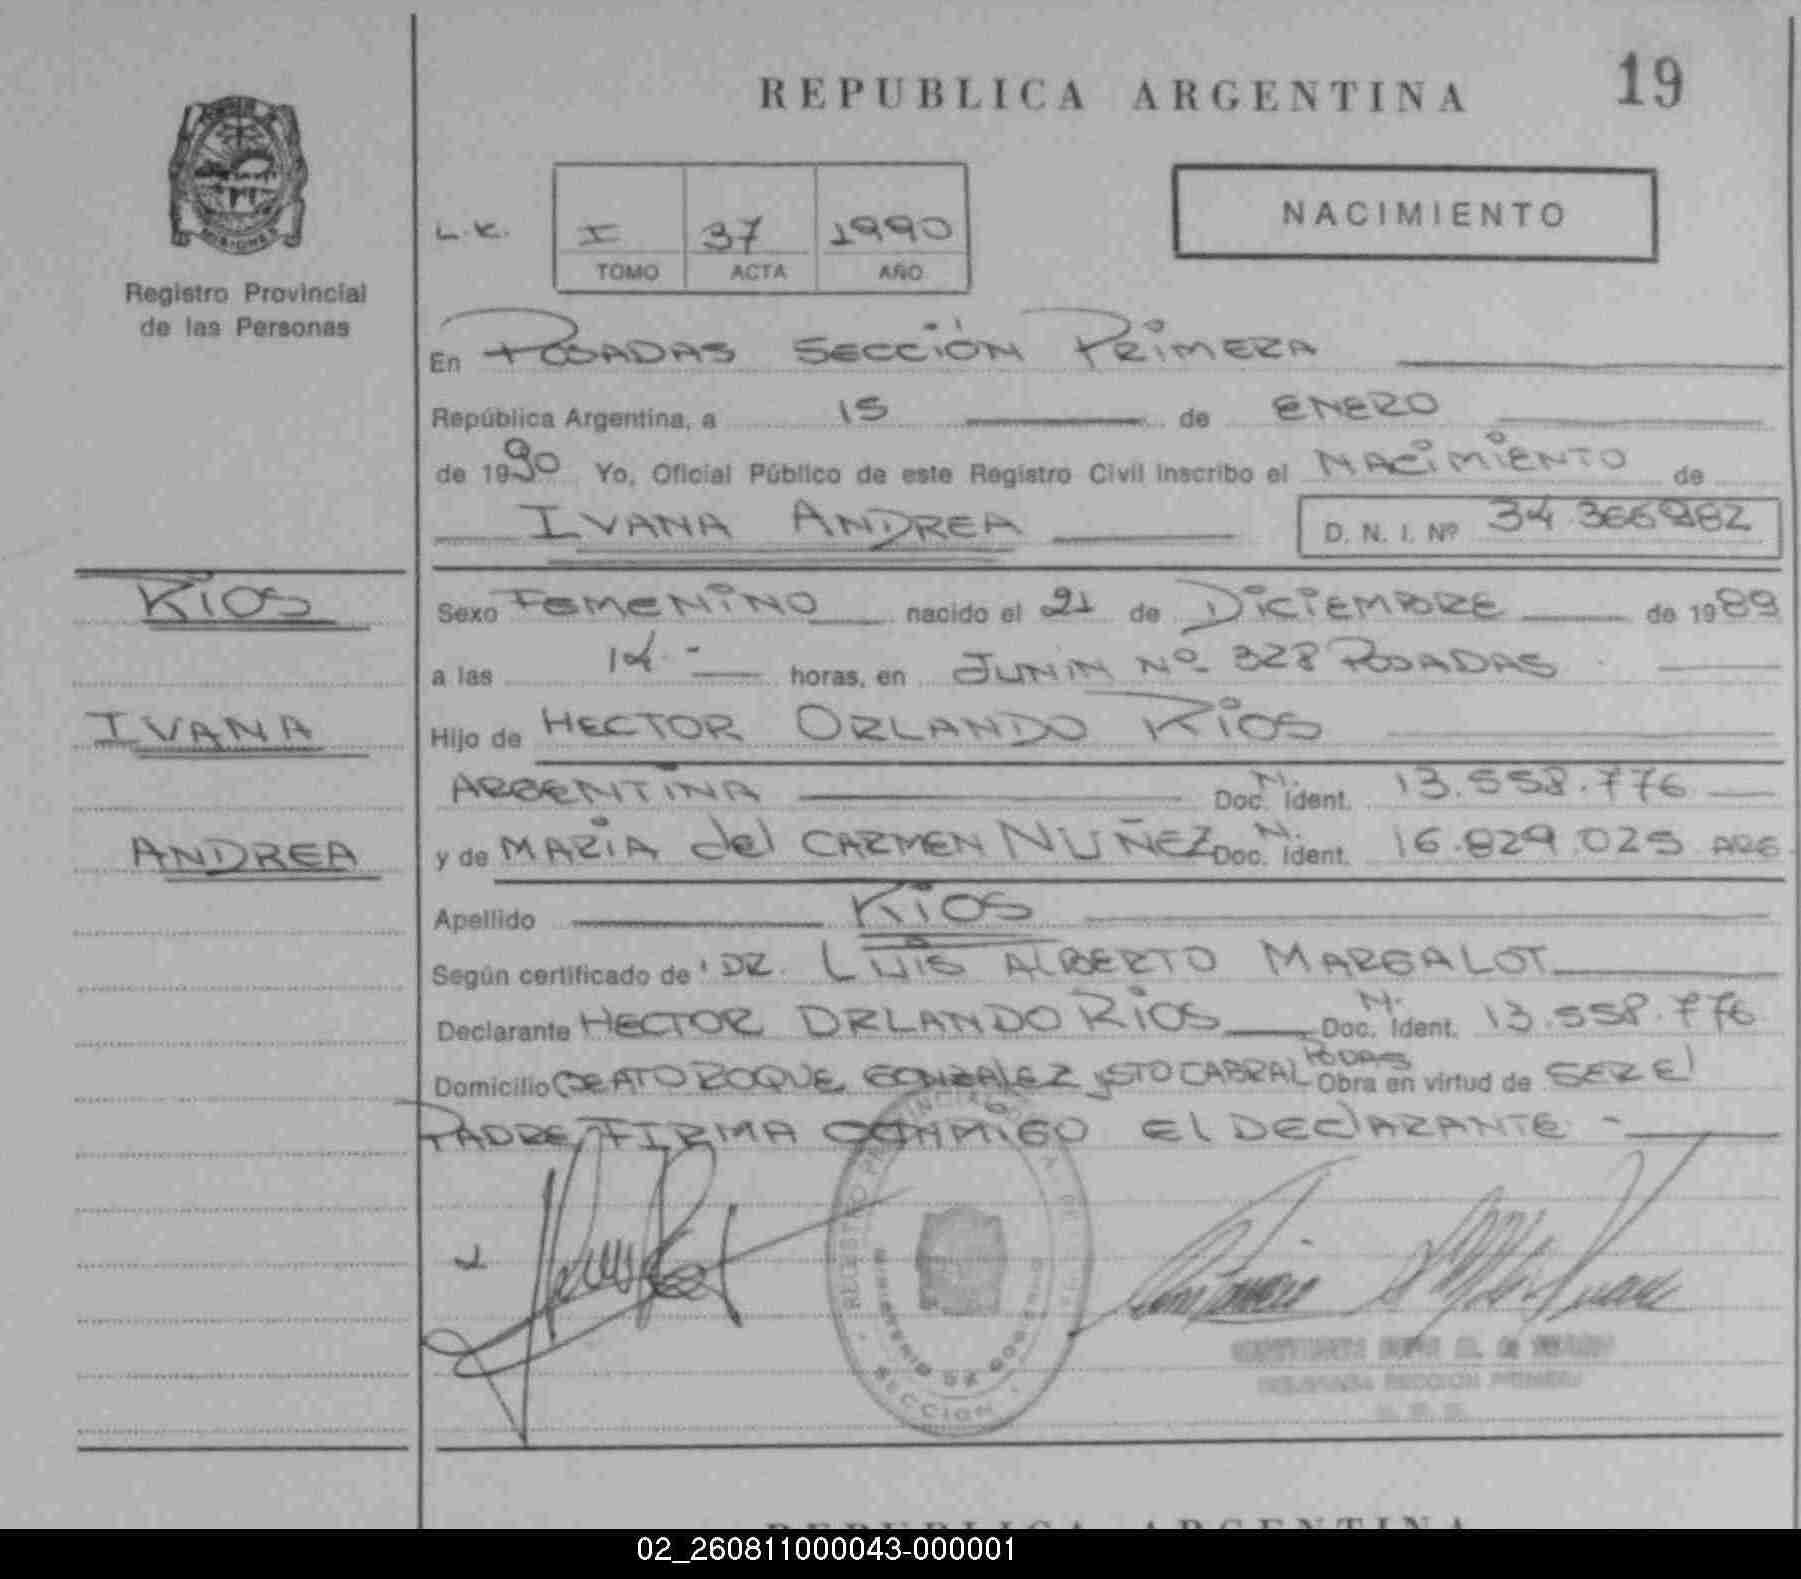 REPUBLICA ARGENTINA
19
MISIONES
Registro Provincial
de las Personas
L.K. I 37 1990
TOMO ACTA AÑO
NACIMIENTO
En POSADAS SECCIÓN PRIMERA
República Argentina, a 15 de ENERO
de 1990 Yo, Oficial Público de este Registro Civil inscribo el NACIMIENTO de
IVANA ANDREA D. N. I. Nº 34 366982
RIOS
Sexo FEMENINO nacido el 21 de DICIEMBRE de 1989
a las 14.- horas, en JUNIN Nº 328 POSADAS
IVANA
Hijo de HECTOR ORLANDO RIOS
ARGENTINA Doc. M. Ident. 13.558.776
ANDREA
y de MARIA del CARMEN NUÑEZ Doc. M. Ident. 16.829.025 ARG
Apellido RIOS
Según certificado de DR. LUIS ALBERTO MARGALOT
Declarante HECTOR ORLANDO RIOS Doc. M. Ident. 13.558.776
Domicilio BEATO ROQUE GONZALEZ y STO CABRAL PODAS Obra en virtud de SER El
PADRE FIRMA CONMIGO El DEClARANTE.-
SECCION
REPUBLICA ARGENTINA
02_260811000043-000001